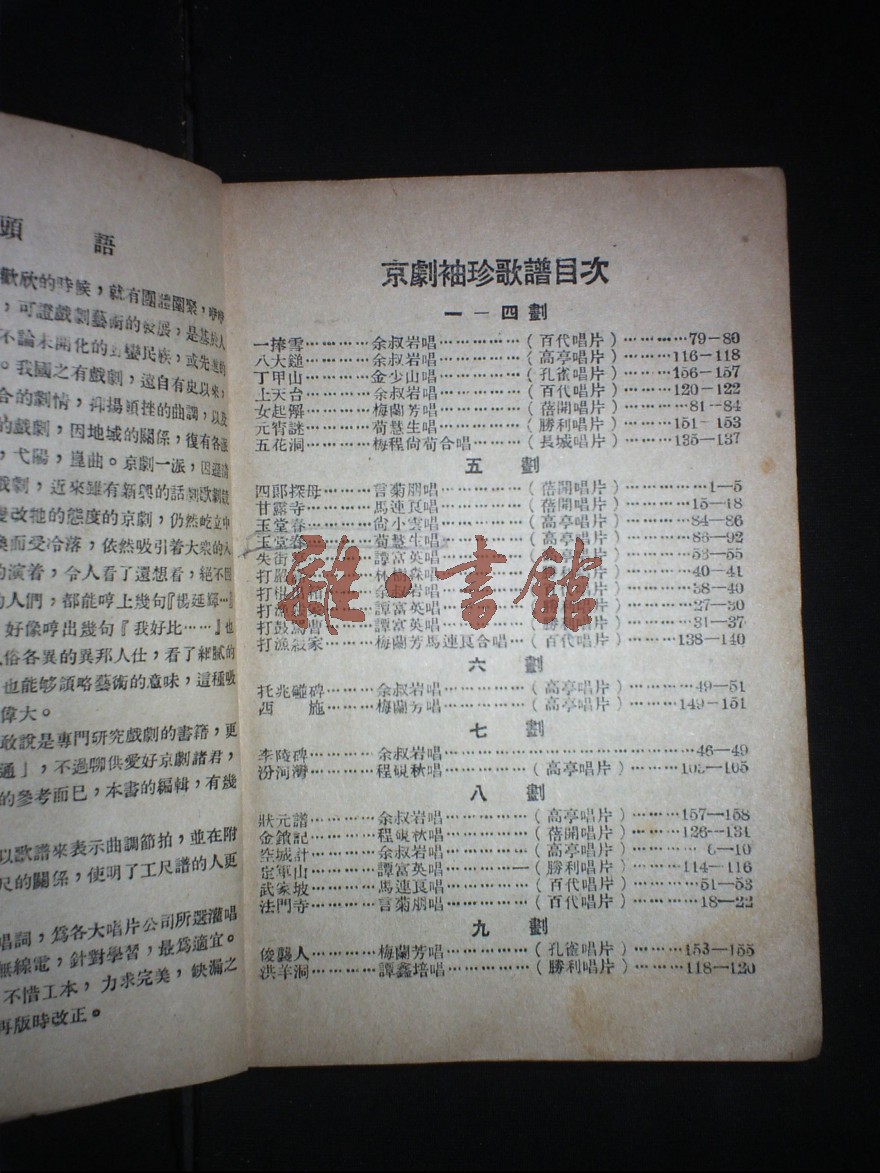 頭 語
歡欣的時候，就有團體圍聚，
，可證戲劇藝術的發展，是基於人
不論未開化的 蠻民族，或先進的
。我國之有戲劇，遠自有史以來，
合的劇情，抑揚頓挫的曲調，以及
的戲劇，因地域的關係，復有各派
，弋陽，崑曲。京劇一派，因迎清
戲劇，近來雖有新興的話劇歌劇
變改牠的態度的京劇，仍然屹立中
換而受冷落，依然吸引着大衆的人
的演着，令人看了還想看，絕不因
的人們，都能哼上幾句『楊延輝…』
好像哼出幾句『我好比……』也
俗各異的異邦人仕，看了細膩的
也能够領略藝術的意味，這種吸
偉大。
敢說是專門研究戲劇的書籍，更
通」，不過聊供愛好京劇諸君，
的參考而已，本書的編輯，有幾
以歌譜來表示曲調節拍，並在附
尺的關係，使明了工尺譜的人更
唱詞，爲各大唱片公司所選灌唱
無線電，針對學習，最爲適宜。
不惜工本，力求完美，缺漏之
再版時改正。
京劇袖珍歌譜目次
一－四劃
一捧雪………余叔岩唱……………（百代唱片）………79—80
八大鎚………余叔岩唱……………（高亭唱片）………116—118
丁甲山………金少山唱……………（孔雀唱片）………156—157
上天台………余叔岩唱……………（百代唱片）………120—122
女起解………梅蘭芳唱……………（蓓開唱片）………81—84
元宵謎………荀慧生唱……………（勝利唱片）………151—153
五花洞………梅程尙荀合唱………（長城唱片）………135—137
五 劃
四郞探母………言菊朋唱……………（蓓開唱片）………1—5
甘露寺………馬連良唱……………（蓓開唱片）………15—18
玉堂春………尙小雲唱……………（高亭唱片）………84—86
玉堂春………荀慧生唱……………（高亭唱片）………86—92
失街亭………譚富英唱……………（高亭唱片）………53—55
打嚴 ………林樹森唱……………（ 唱片）………40—41
打棍 ………余叔岩唱……………（ 唱片）………38—40
打 ………譚富英唱……………（ 唱片）………27—30
打鼓罵曹………譚富英唱……………（ 唱片）………31—37
打漁殺家………梅蘭芳馬連良合唱…（百代唱片）………138—140
六 劃
托兆碰碑………余叔岩唱……………（高亭唱片）………49—51
西 施………梅蘭芳唱……………（高亭唱片）………149—151
七 劃
李陵碑………余叔岩唱…………………………………46—49
汾河灣………程硯秋唱……………（高亭唱片）………102—105
八 劃
狀元譜………余叔岩唱……………（高亭唱片）………157—158
金鎖記………程硯秋唱……………（蓓開唱片）………126—131
空城計………余叔岩唱……………（高亭唱片）………6—10
定軍山………譚富英唱……………（勝利唱片）………114—116
武家坡………馬連良唱……………（百代唱片）………51—53
法門寺………言菊朋唱……………（百代唱片）………18—22
九 劃
俊襲人………梅蘭芳唱……………（孔雀唱片）………153—155
洪羊洞………譚鑫培唱……………（勝利唱片）………118—120
雜·書館